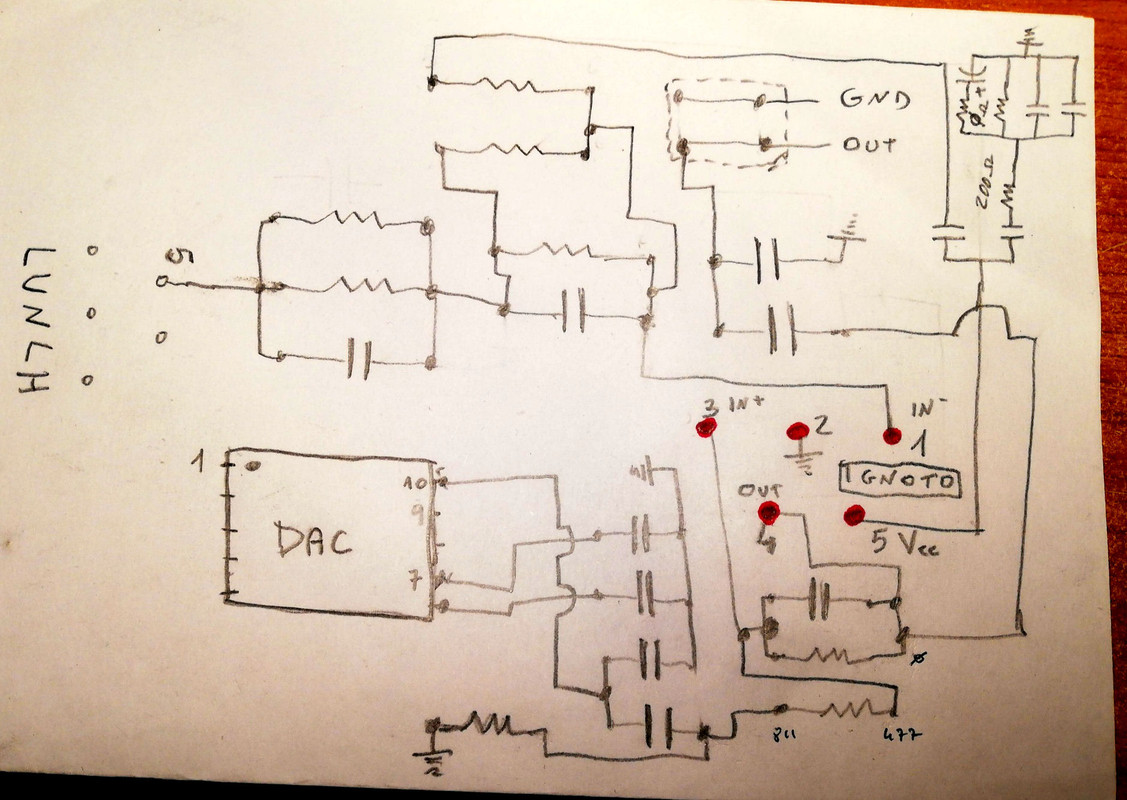 GND
OUT
0Ω+1
200Ω
5
LUNCH
3 IN+
2
IN-
1
IGNOTO
OUT
4
5 Vcc
1
10
9
DAC
7
811
477